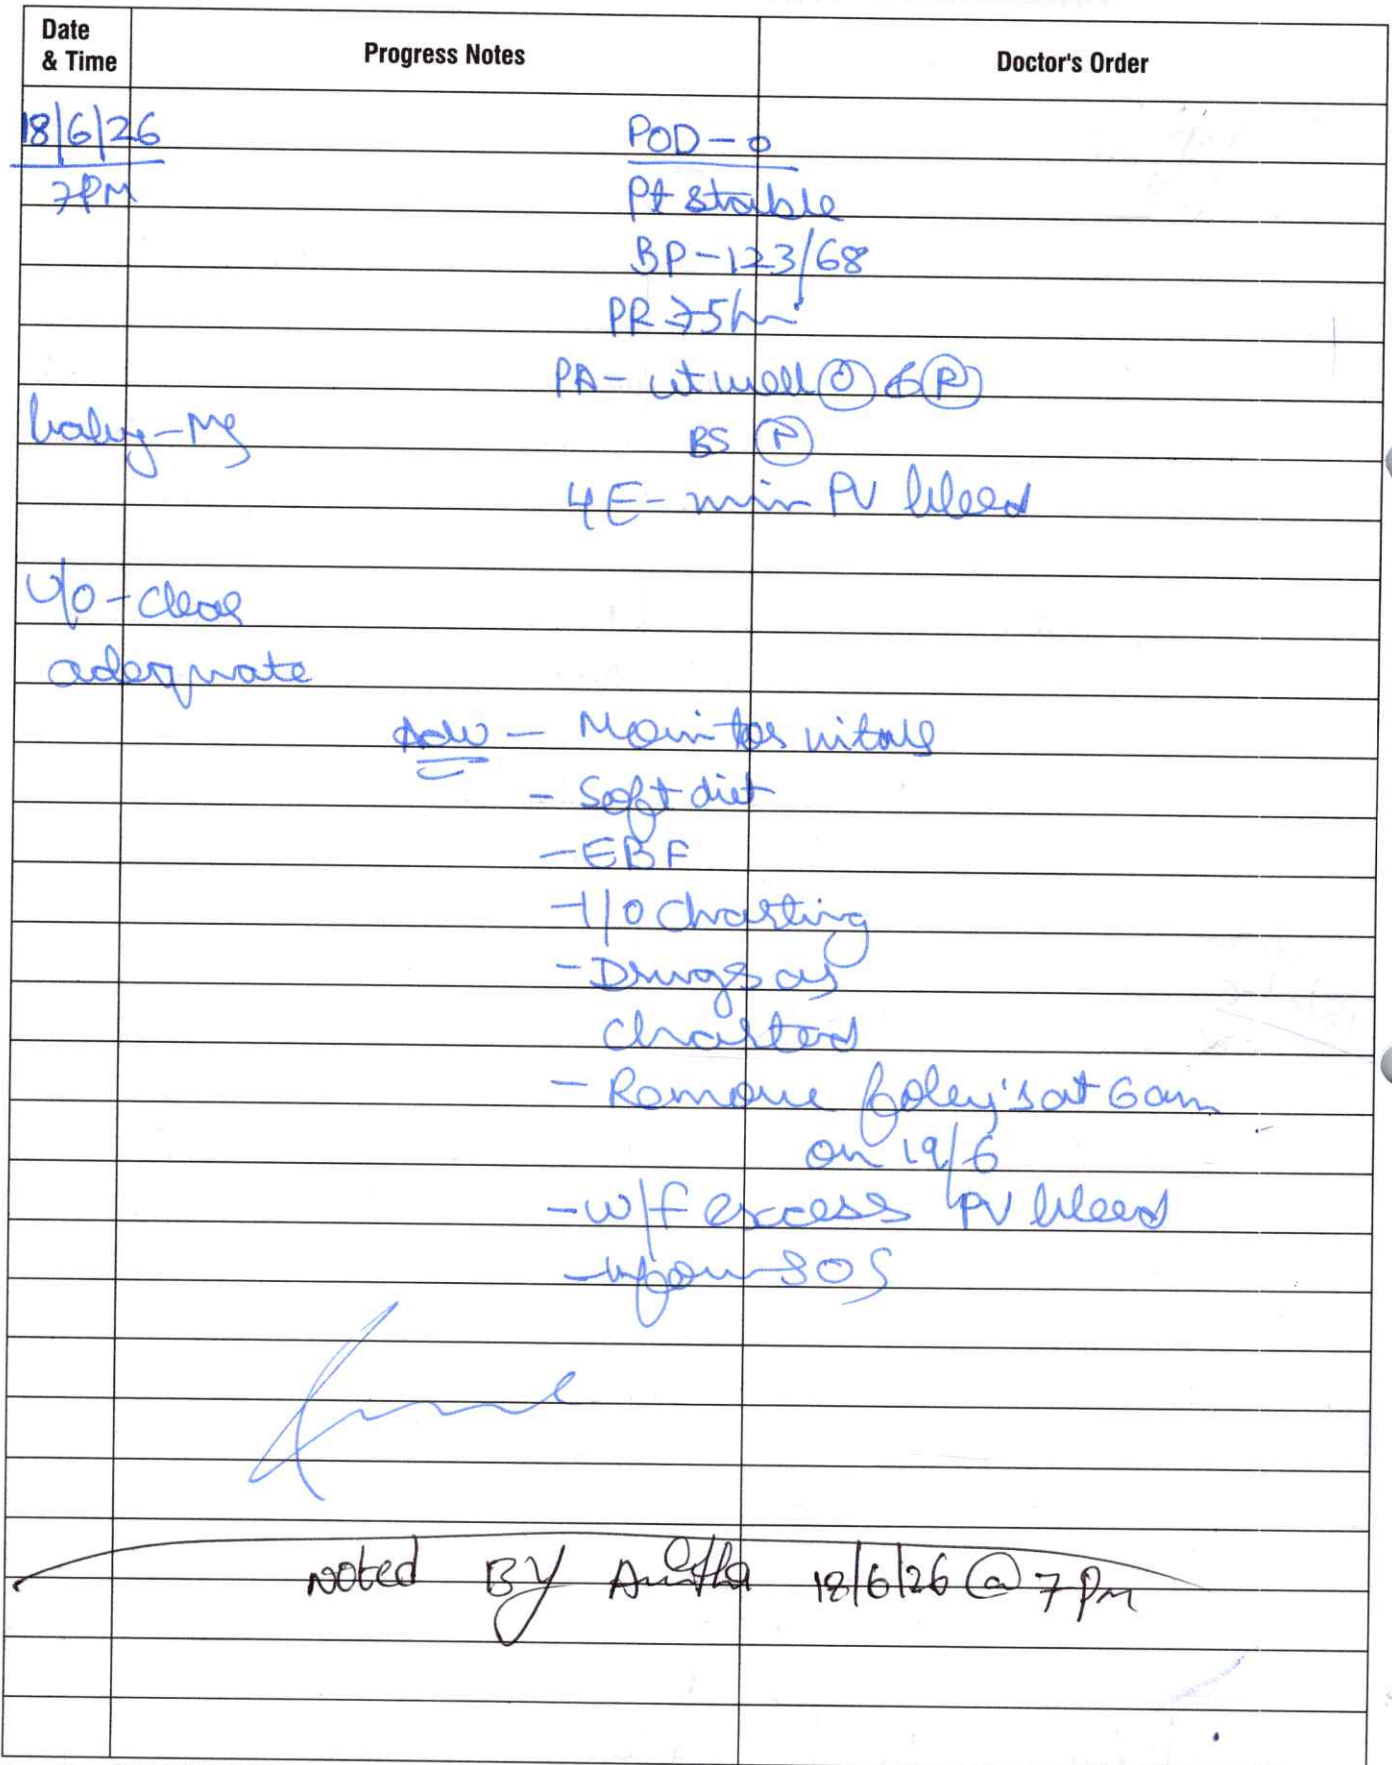 Date & Time Progress Notes Doctor's Order
18/6/26 POD-0
7PM Pt stable
BP-123/68
PR 75/m
PA- ut well
baby-Ms BS (P)
4E- min PV bleed
U/O-clear
adequate
Adv - Monitor vitals
- Soft diet
- EBF
- I/O charting
- Drugs as
charted
- Remove foley's at 6am
on 19/6
- w/f excess PV bleed
- inform SOS
Noted By Anitha 18/6/26 @ 7 Pm